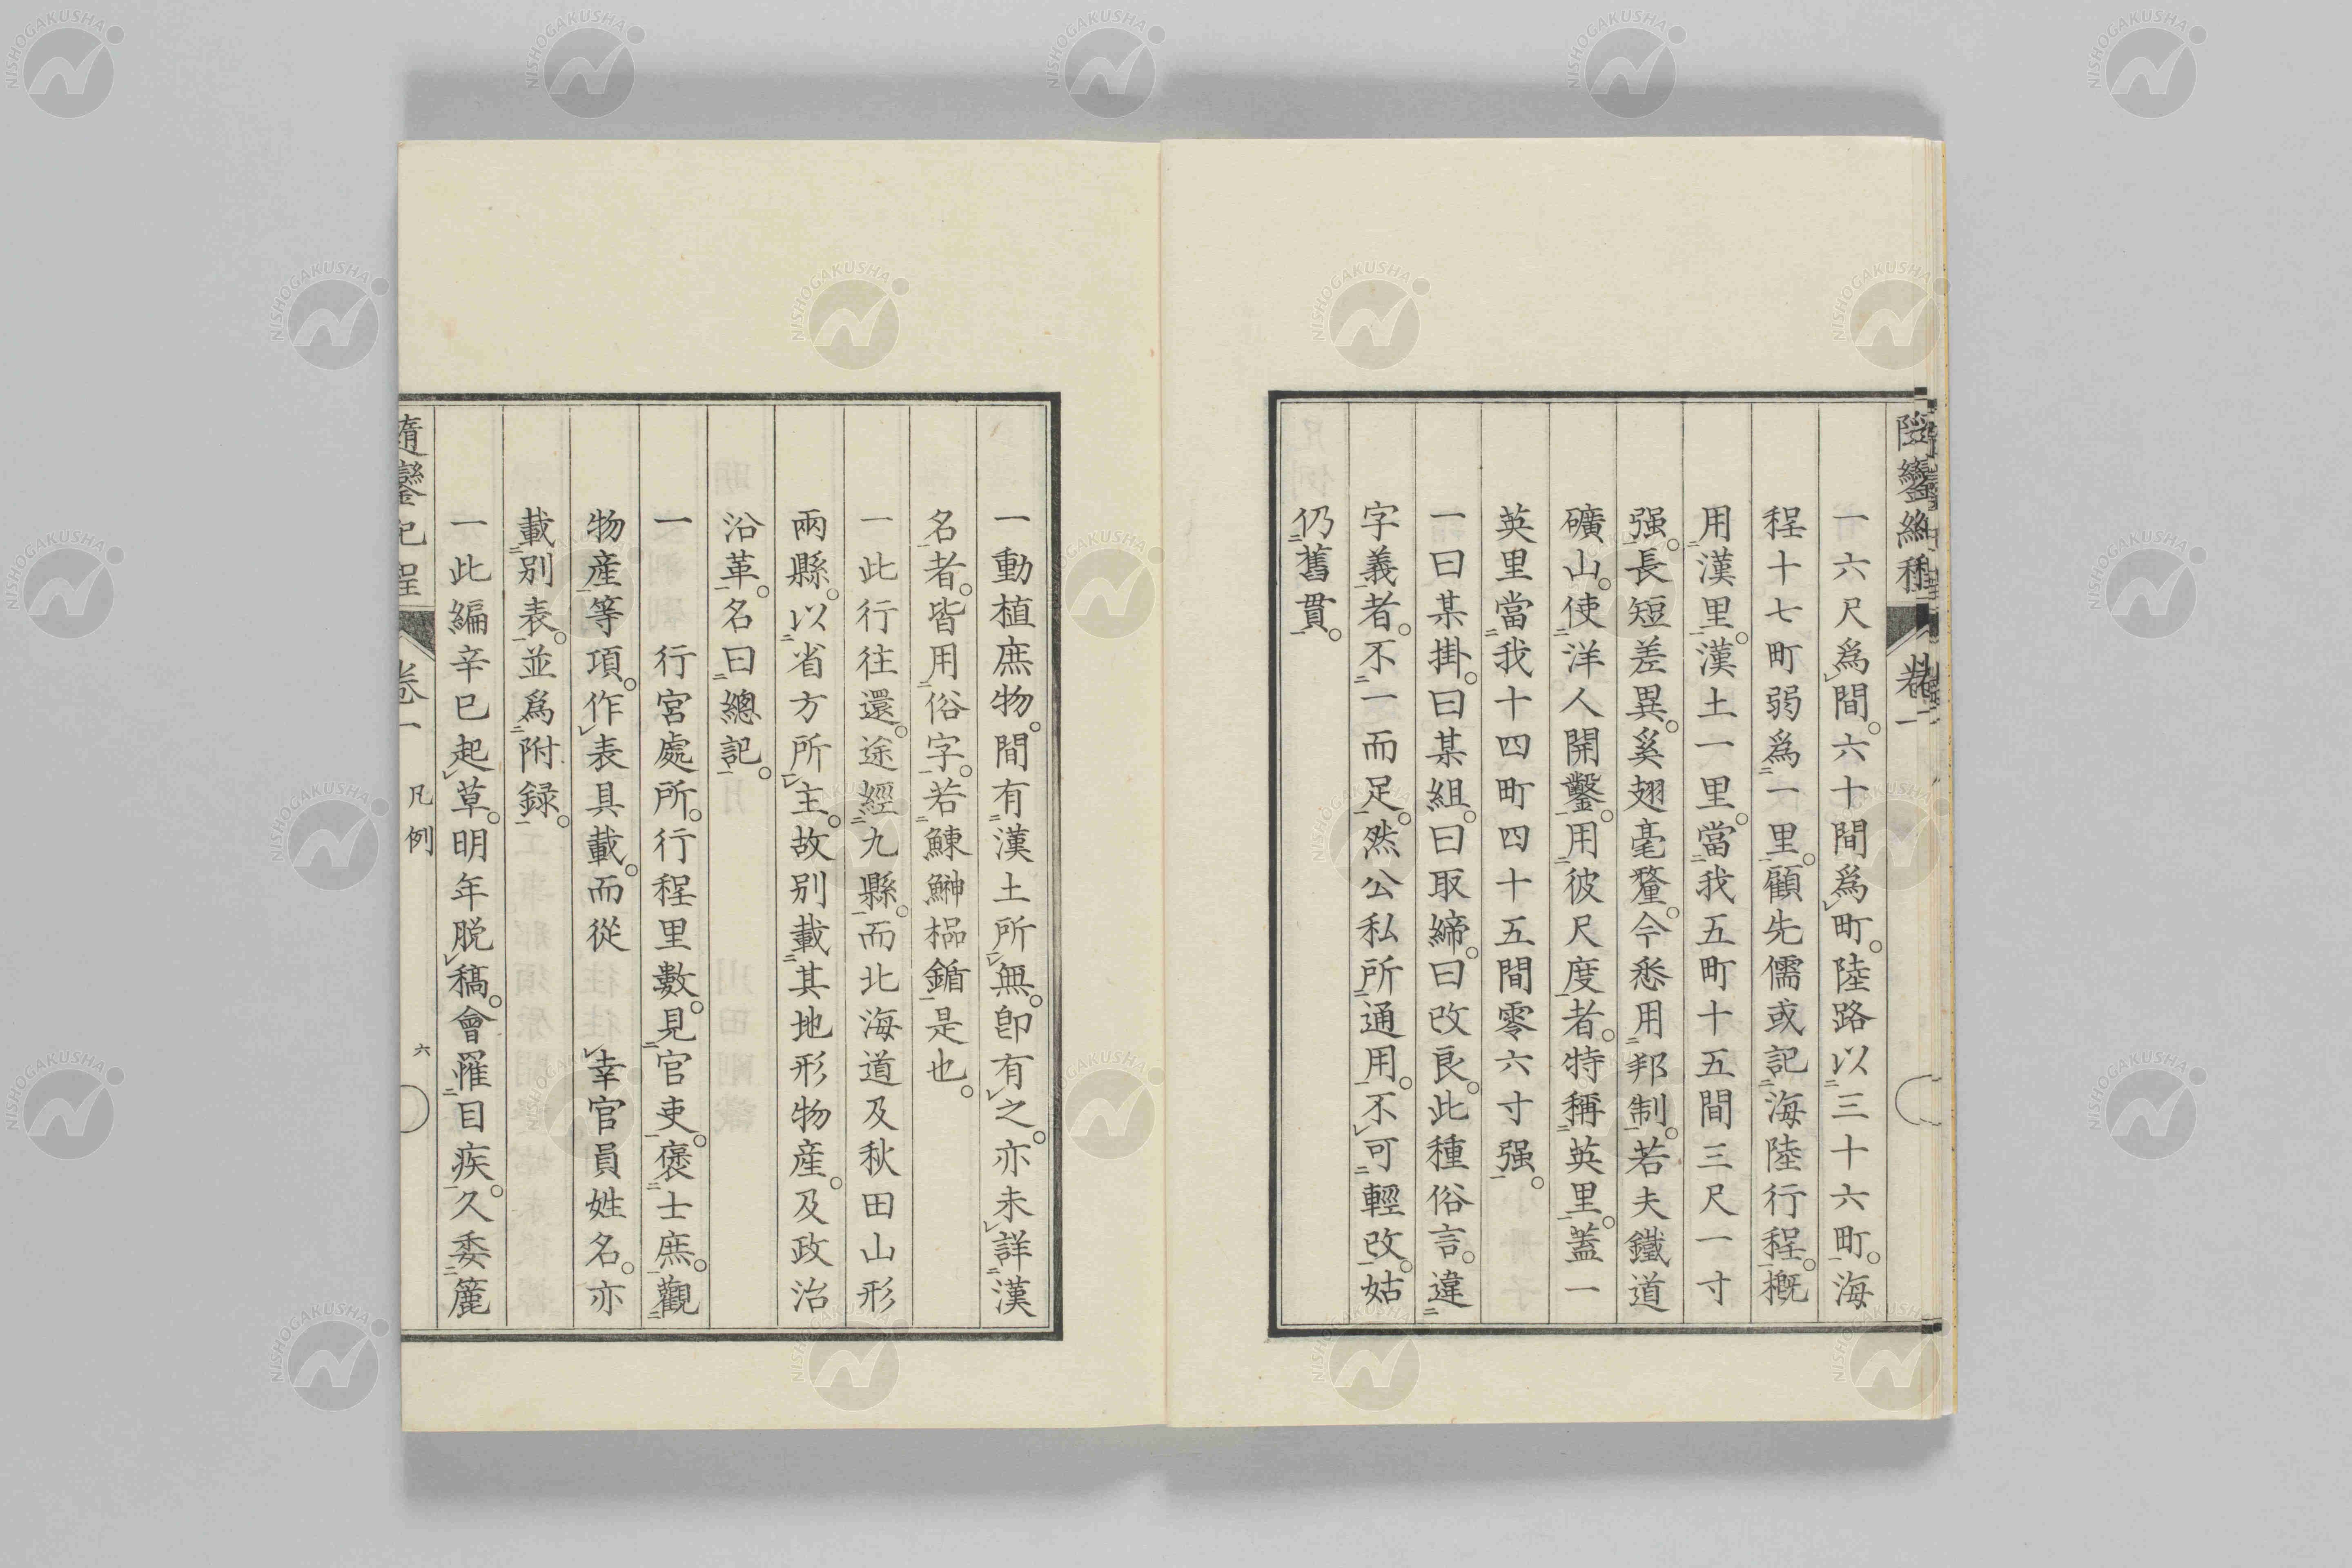 隨鑾紀程
卷一
一六尺爲間。六十間爲町。陸路以三十六町。海
程十七町弱爲一里。顧先儒或記海陸行程。概
用漢里。漢土一里。當我五町十五間三尺一寸
强。長短差異。奚翅毫釐。今悉用邦制。若夫鐵道
礦山。使洋人開鑿。用彼尺度者。特稱英里。蓋一
英里當我十四町四十五間零六寸强。
一曰某掛。曰某組。曰取締。曰改良。此種俗言。違
字義者。不一而足。然公私所通用。不可輕改。姑
仍舊貫。
一動植庶物。間有漢土所無。卽有之。亦未詳漢
名者。皆用俗字。若鰊鰰榀鍎是也。
一此行往還。途經九縣。而北海道及秋田山形
兩縣。以省方所主。故別載其地形物産。及政治
沿革。名曰總記。
一　行宮處所。行程里數。見官吏。褒士庶。觀
物産等項。作表具載。而從　幸官員姓名。亦
載別表。並爲附録。
一此編辛巳起草。明年脱稿。會罹目疾。久委簏
隨鑾紀程
卷一
凡例
六
NISHOGAKUSHA